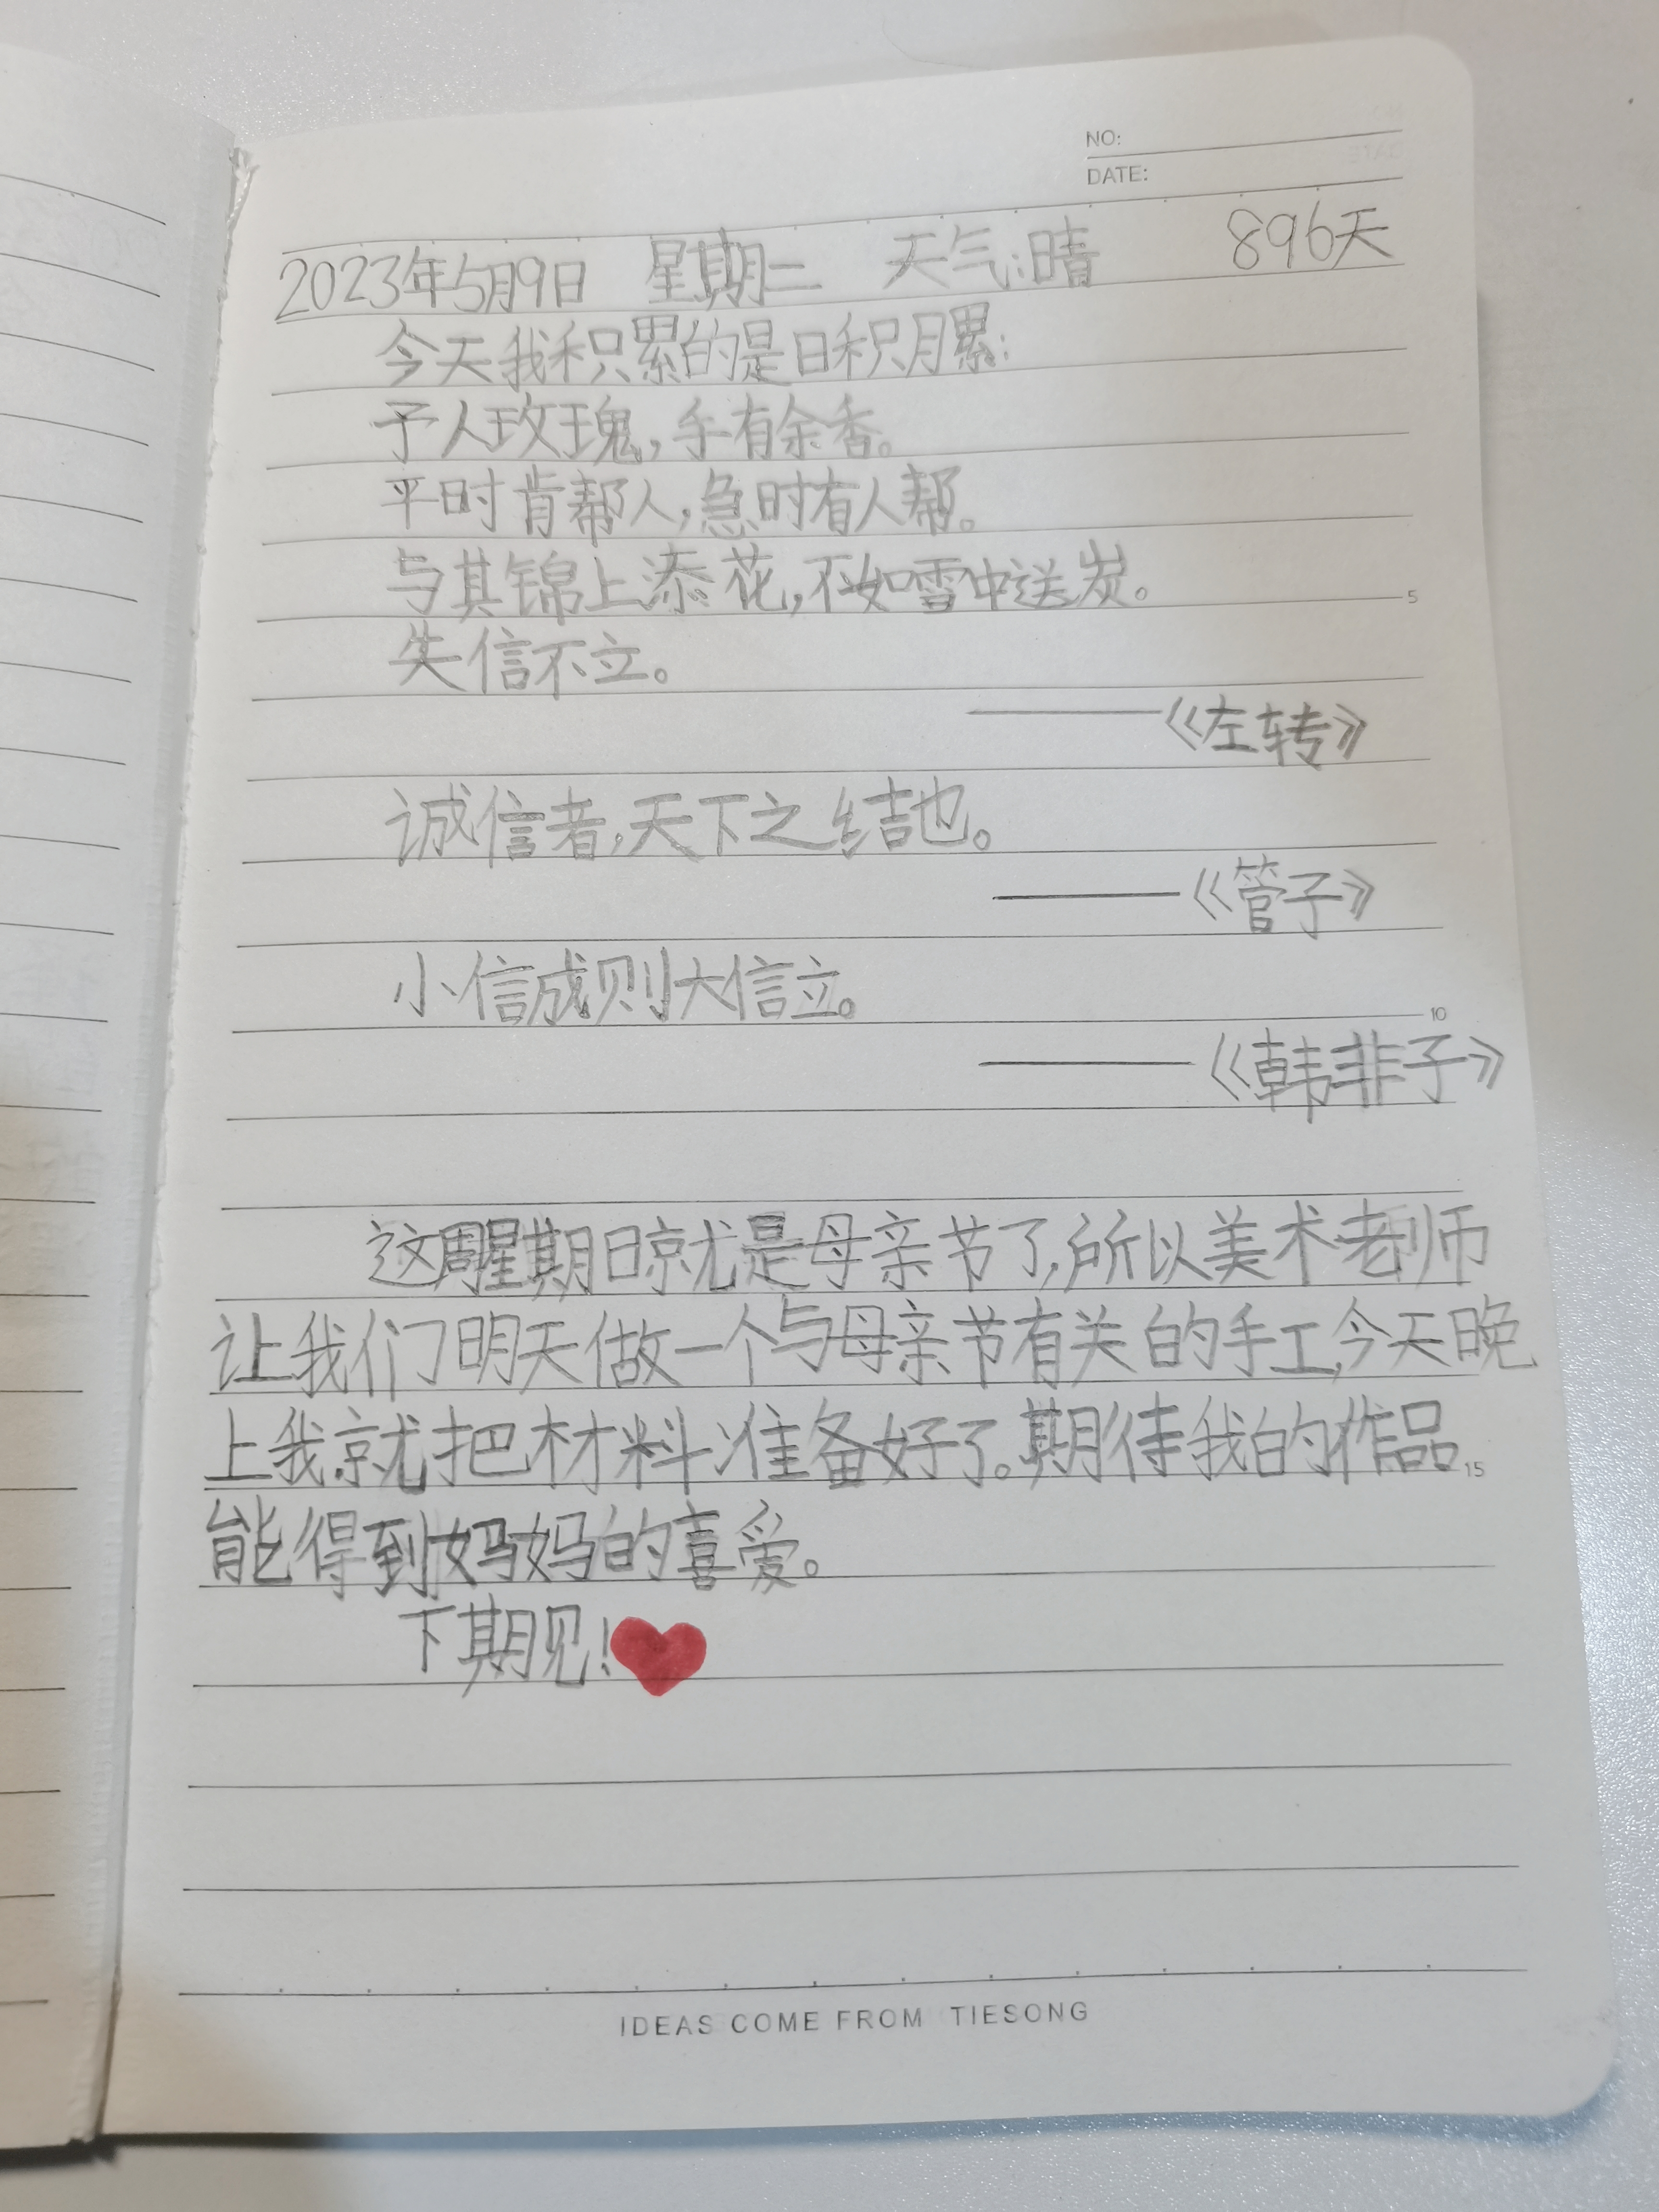 NO:
DATE:
2023年5月9日 星期二 天气:晴 896天
今天我积累的是日积月累:
予人玫瑰,手有余香。
平时肯帮人,急时有人帮。
与其锦上添花,不如雪中送炭。
5
失信不立。
——《左转》
诚信者,天下之结也。
——《管子》
小信成则大信立。
10
——《韩非子》
这周星期日就是母亲节了,所以美术老师
让我们明天做一个与母亲节有关的手工,今天晚
上我就把材料准备好了。期待我的作品
15
能得到妈妈的喜爱。
下期见!
IDEAS COME FROM TIESONG